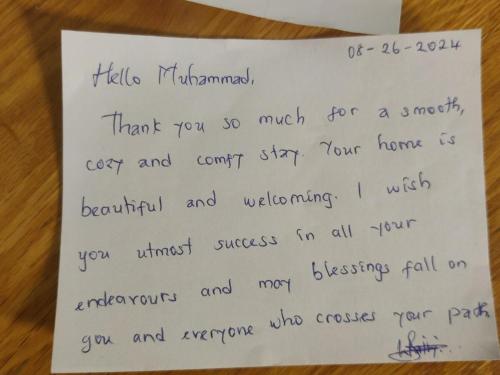 08-26-2024
Hello Muhammad,
Thank you so much for a smooth,
cozy and comfy stay. Your home is
beautiful and welcoming. I wish
you utmost success in all your
endeavours and may blessings fall on
you and everyone who crosses your path